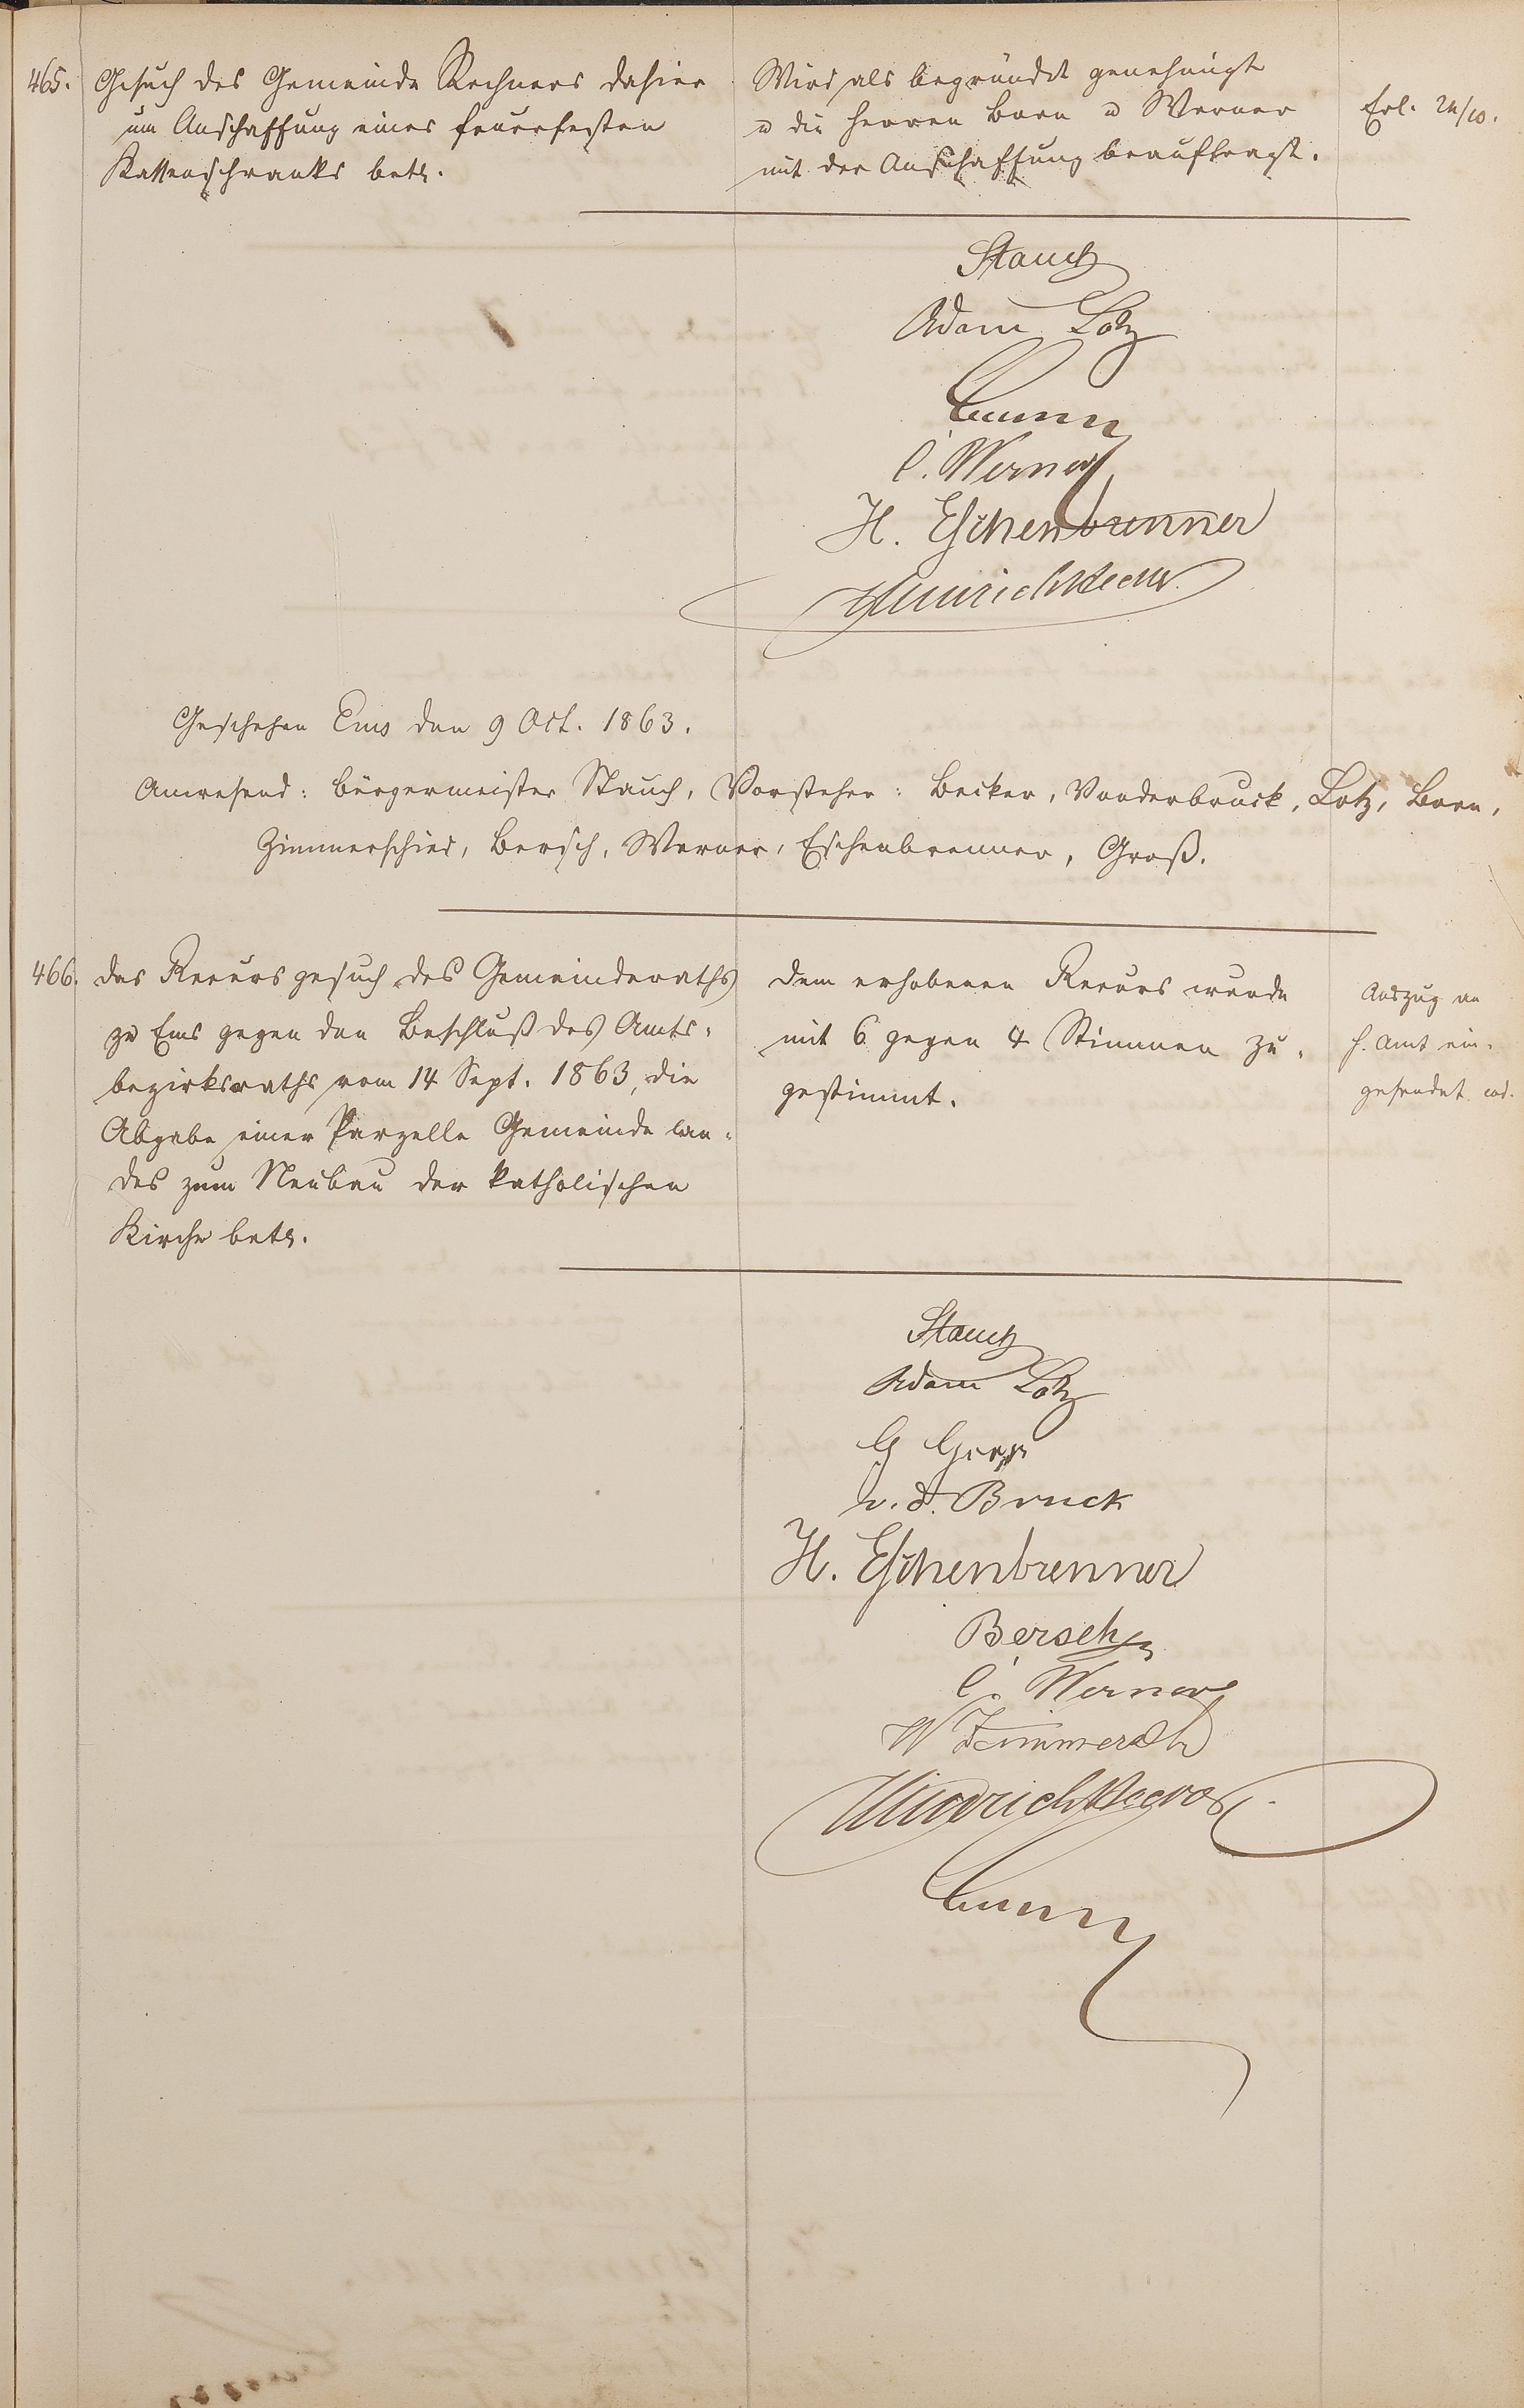 465.
Gesuch des Gemeinde Rechners dahier
um Anschaffung eines feuerfesten
Kassenschranks betr.
Wird als begründet genehmigt
u die Herren Born u Werner
mit der Anschaffung beauftragt.
Erl. 24/10.
Stauch
Adam Lotz
Born
C. Werner
H. Eschenbrenner
Heinrich Becker
Geschehen Ems den 9 Oct. 1863.
Anwesend: Bürgermeister Stauch, Vorsteher: Becker, Vonderbruck, Lotz, Born,
Zimmerschied, Bersch, Werner, Eschenbrenner, Groß.
466.
Das Recursgesuch des Gemeinderaths
zu Ems gegen den Beschluß des Amts-
bezirksraths vom 14 Sept. 1863, die
Abgabe einer Parzelle Gemeinde lan-
des zum Neubau der katholischen
Kirche betr.
Dem erhobenen Recurs wurde
mit 6 gegen 4 Stimmen zu-
gestimmt.
Auszug an
H. Amt ein-
gesendet
Stauch
Adam Lotz
G Groß
v. d. Bruck
H. Eschenbrenner
Bersch
C. Werner
W Zimmersch
Heinrich Becker
Born